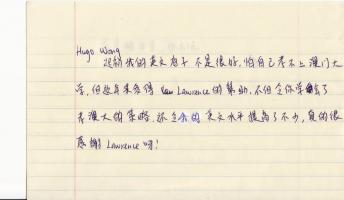 Hugo Wong
起初我的英文底子不是很好,怕自己考不上澳門大
學,但後來多得 Lawrence 的幫助,不但令我學會了
考澳大的策略,還令我的英文水平提高了不少,真的很
感謝 Lawrence 呀!